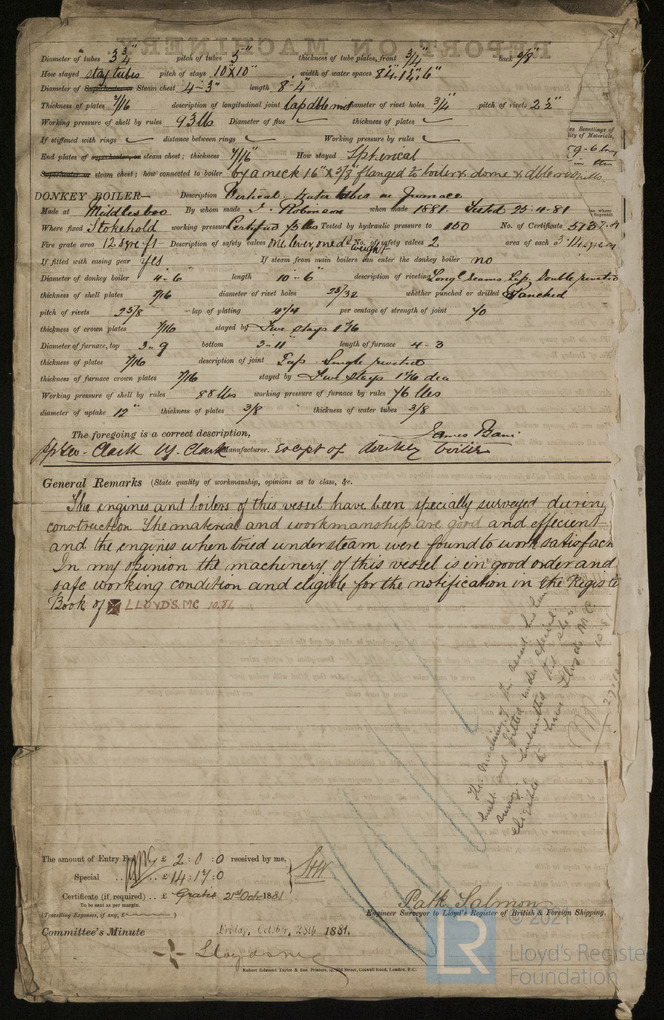 Diameter of tubes 3 3/4" pitch of tubes 5" thickness of tube plates, front 3/4" back 5/8"
How stayed stay tubes pitch of stays 10"x10" width of water spaces
Diameter of Superheater or Steam chest 4-3" length 8-4"
Thickness of plates 7/16 description of longitudinal joint lap dble rivet diameter of rivet holes 3/4" pitch of rivets 2 1/2"
Working pressure of shell by rules 93 lbs Diameter of flue thickness of plates
If stiffened with rings distance between rings Working pressure by rules
End plates of superheater, or steam chest; thickness 7/16" How stayed Spherical
Superheater or steam chest; how connected to boiler by a neck 16" x flanged to boiler & dome & dble
DONKEY BOILER— Description Vertical. water tubes in furnace
Made at Middlesboro By whom made Robinson when made 1881 Tested 25-4-81
Where fixed Stokehold working pressure Tested by hydraulic pressure to 150 No. of Certificate
Fire grate area 12 sqre ft Description of safety valves one lever one d weight No. of safety valves 2 area of each
If fitted with easing gear yes If steam from main boilers can enter the donkey boiler no
Diameter of donkey boiler 4-6 length 10-6" description of riveting Long'l Seams Lap. Double riveted
thickness of shell plates 7/16 diameter of rivet holes 25/32 whether punched or drilled Punched
pitch of rivets 2 5/8 lap of plating per centage of strength of joint 70
thickness of crown plates 7/16 stayed by Five stays 1 7/16
Diameter of furnace, top 3-9 bottom length of furnace 4-3
thickness of plates 7/16 description of joint Lap Single riveted
thickness of furnace crown plates 7/16 stayed by Five stays dia
Working pressure of shell by rules 88 lbs working pressure of furnace by rules 76 lbs
diameter of uptake 12" thickness of plates 3/8 thickness of water tubes 3/8
The foregoing is a correct description,
Geo. Clark Manufacturer. except of donkey boiler
General Remarks (State quality of workmanship, opinions as to class, &c.
The engines and boilers of this vessel have been specially surveyed during
construction. The material and workmanship are good and effecient
and the engines when tried under steam were found to work satisfac
In my opinion the machinery of this vessel is in good order and
safe working condition and eligible for the notification in the Registe
Book of LLOYDS. MC 10.81.
The machinery of this vessel has been
built and fitted under special
survey. Submitted that she is
eligible to have Lloyds M.C.
The amount of Entry Fee £ 2 : 0 : 0 received by me,
Special .. £ 14 : 17 : 0
Certificate (if required) .. £ Gratis 21st Oct. 1881
To be sent as per margin.
(Travelling Expenses, if any, £
Patk Salmon
Engineer Surveyor to Lloyd's Register of British & Foreign Shipping.
Committee's Minute Friday, October, 28th 1881.
Lloyds mc
Robert Edmund Taylor & Son Printers, Old Street, Goswell Road, London, E.C.
© 2021
LR
Lloyd's Register
Foundation